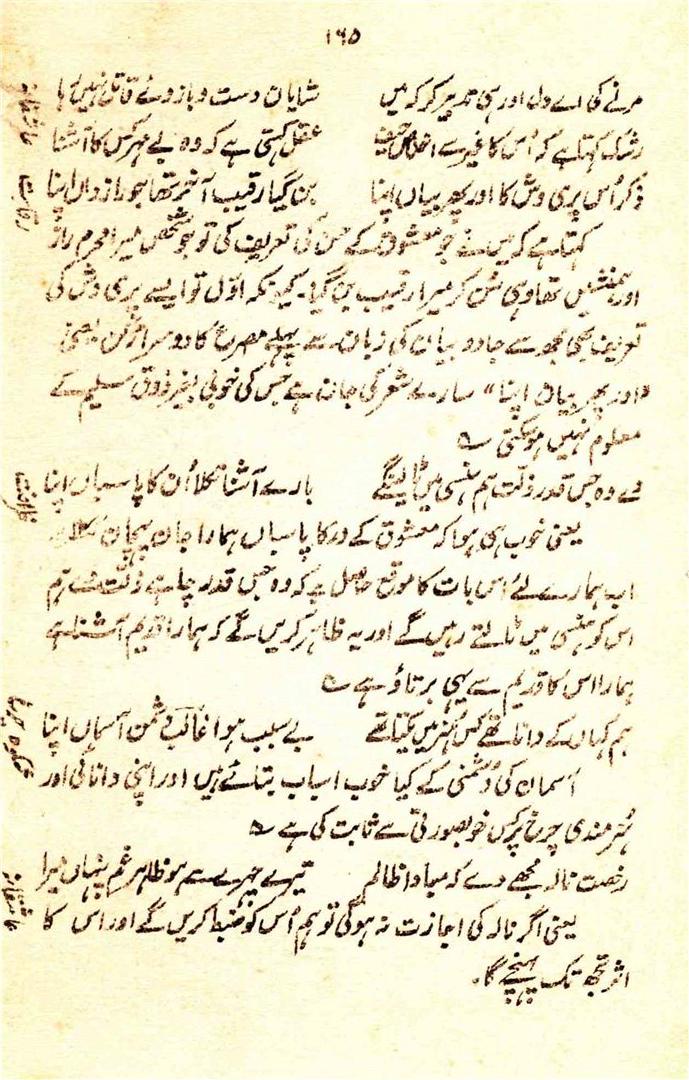 ۱۶۵
مرنے کی اے دل اور ہی تدبیر کر کہ میں شایان دست و بازوئے قاتل نہیں رہا
رشک کہتا ہے کہ اُس کا غیر سے اخلاص حیف عقل کہتی ہے کہ وہ بے مہر کس کا آشنا
ذکر اُس پری وش کا اور پھر بیاں اپنا بن گیا رقیب آخر تھا جو رازداں اپنا
کہتا ہے کہ میں نے جو معشوق کے حسن کی تعریف کی تو جو شخص میرا محرم راز
اور ہمنشیں تھا وہی سُن کر میرا رقیب بن گیا۔ کیونکہ اوّل تو ایسے پری وش کی
تعریف بھی مجھ سے جادو بیان کی زبان سے پہلے مصرع کا دوسرا رُکن یعنی
"اور پھر بیاں اپنا" سارے شعر کی جان ہے جس کی خوبی بغیر ذوق سلیم کے
معلوم نہیں ہو سکتی ؎
دے وہ جس قدر ذلت ہم ہنسی میں ٹالینگے بارے آشنا نکلا اُن کا پاسباں اپنا
یعنی خوب ہی ہوا کہ معشوق کے در کا پاسباں ہمارا جان پہچان نکلا۔
اب ہمارے لئے اس بات کا موقع حاصل ہے کہ وہ جس قدر چاہے ذلت دے ہم
اس کو ہنسی میں ٹالتے رہیں گے اور یہ ظاہر کریں گے کہ ہمارا قدیم آشنا ہے
ہمارا اس کا قدیم سے یہی برتاؤ ہے ؎
ہم کہاں کے دانا تھے کس ہُنر میں یکتا تھے بے سبب ہوا غالب دشمن آسماں اپنا
آسمان کی دشمنی کے کیا خوب اسباب بتائے ہیں اور اپنی دانائی اور
ہُنرمندی چرخ پر کس خوبصورتی سے ثابت کی ہے ؎
رخصت نالہ مجھے دے کہ مبادا ظالم تیرے چہرے سے ہو ظاہر غم پنہاں میرا
یعنی اگر نالہ کی اجازت نہ ہوگی تو ہم اُس کو ضبط کریں گے اور اس کا
اثر تجھ تک پہنچے گا۔
عاشقانہ
رقابت
ظرافت